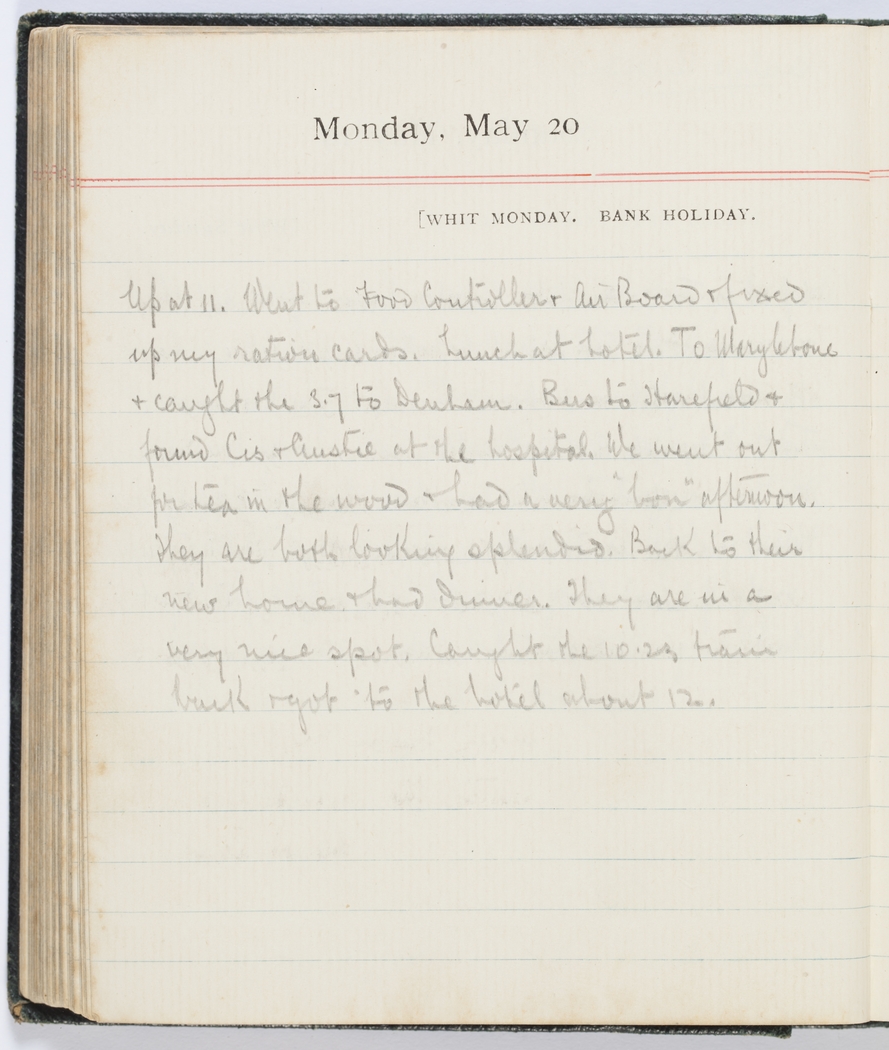 Monday, May 20
[WHIT MONDAY. BANK HOLIDAY.
Up at 11. Went to Food Controller & Air Board & fixed
up my ration cards. Lunch at hotel. To Marylebone
& caught the 3.7 to Denham. Bus to Harefield &
found Cis & Austie at the hospital. We went out
for tea in the wood & had a very "bon" afternoon.
They are both looking splendid. Back to their
new home & had dinner. They are in a
very nice spot. Caught the 10.23 train
back & got to the hotel about 12.